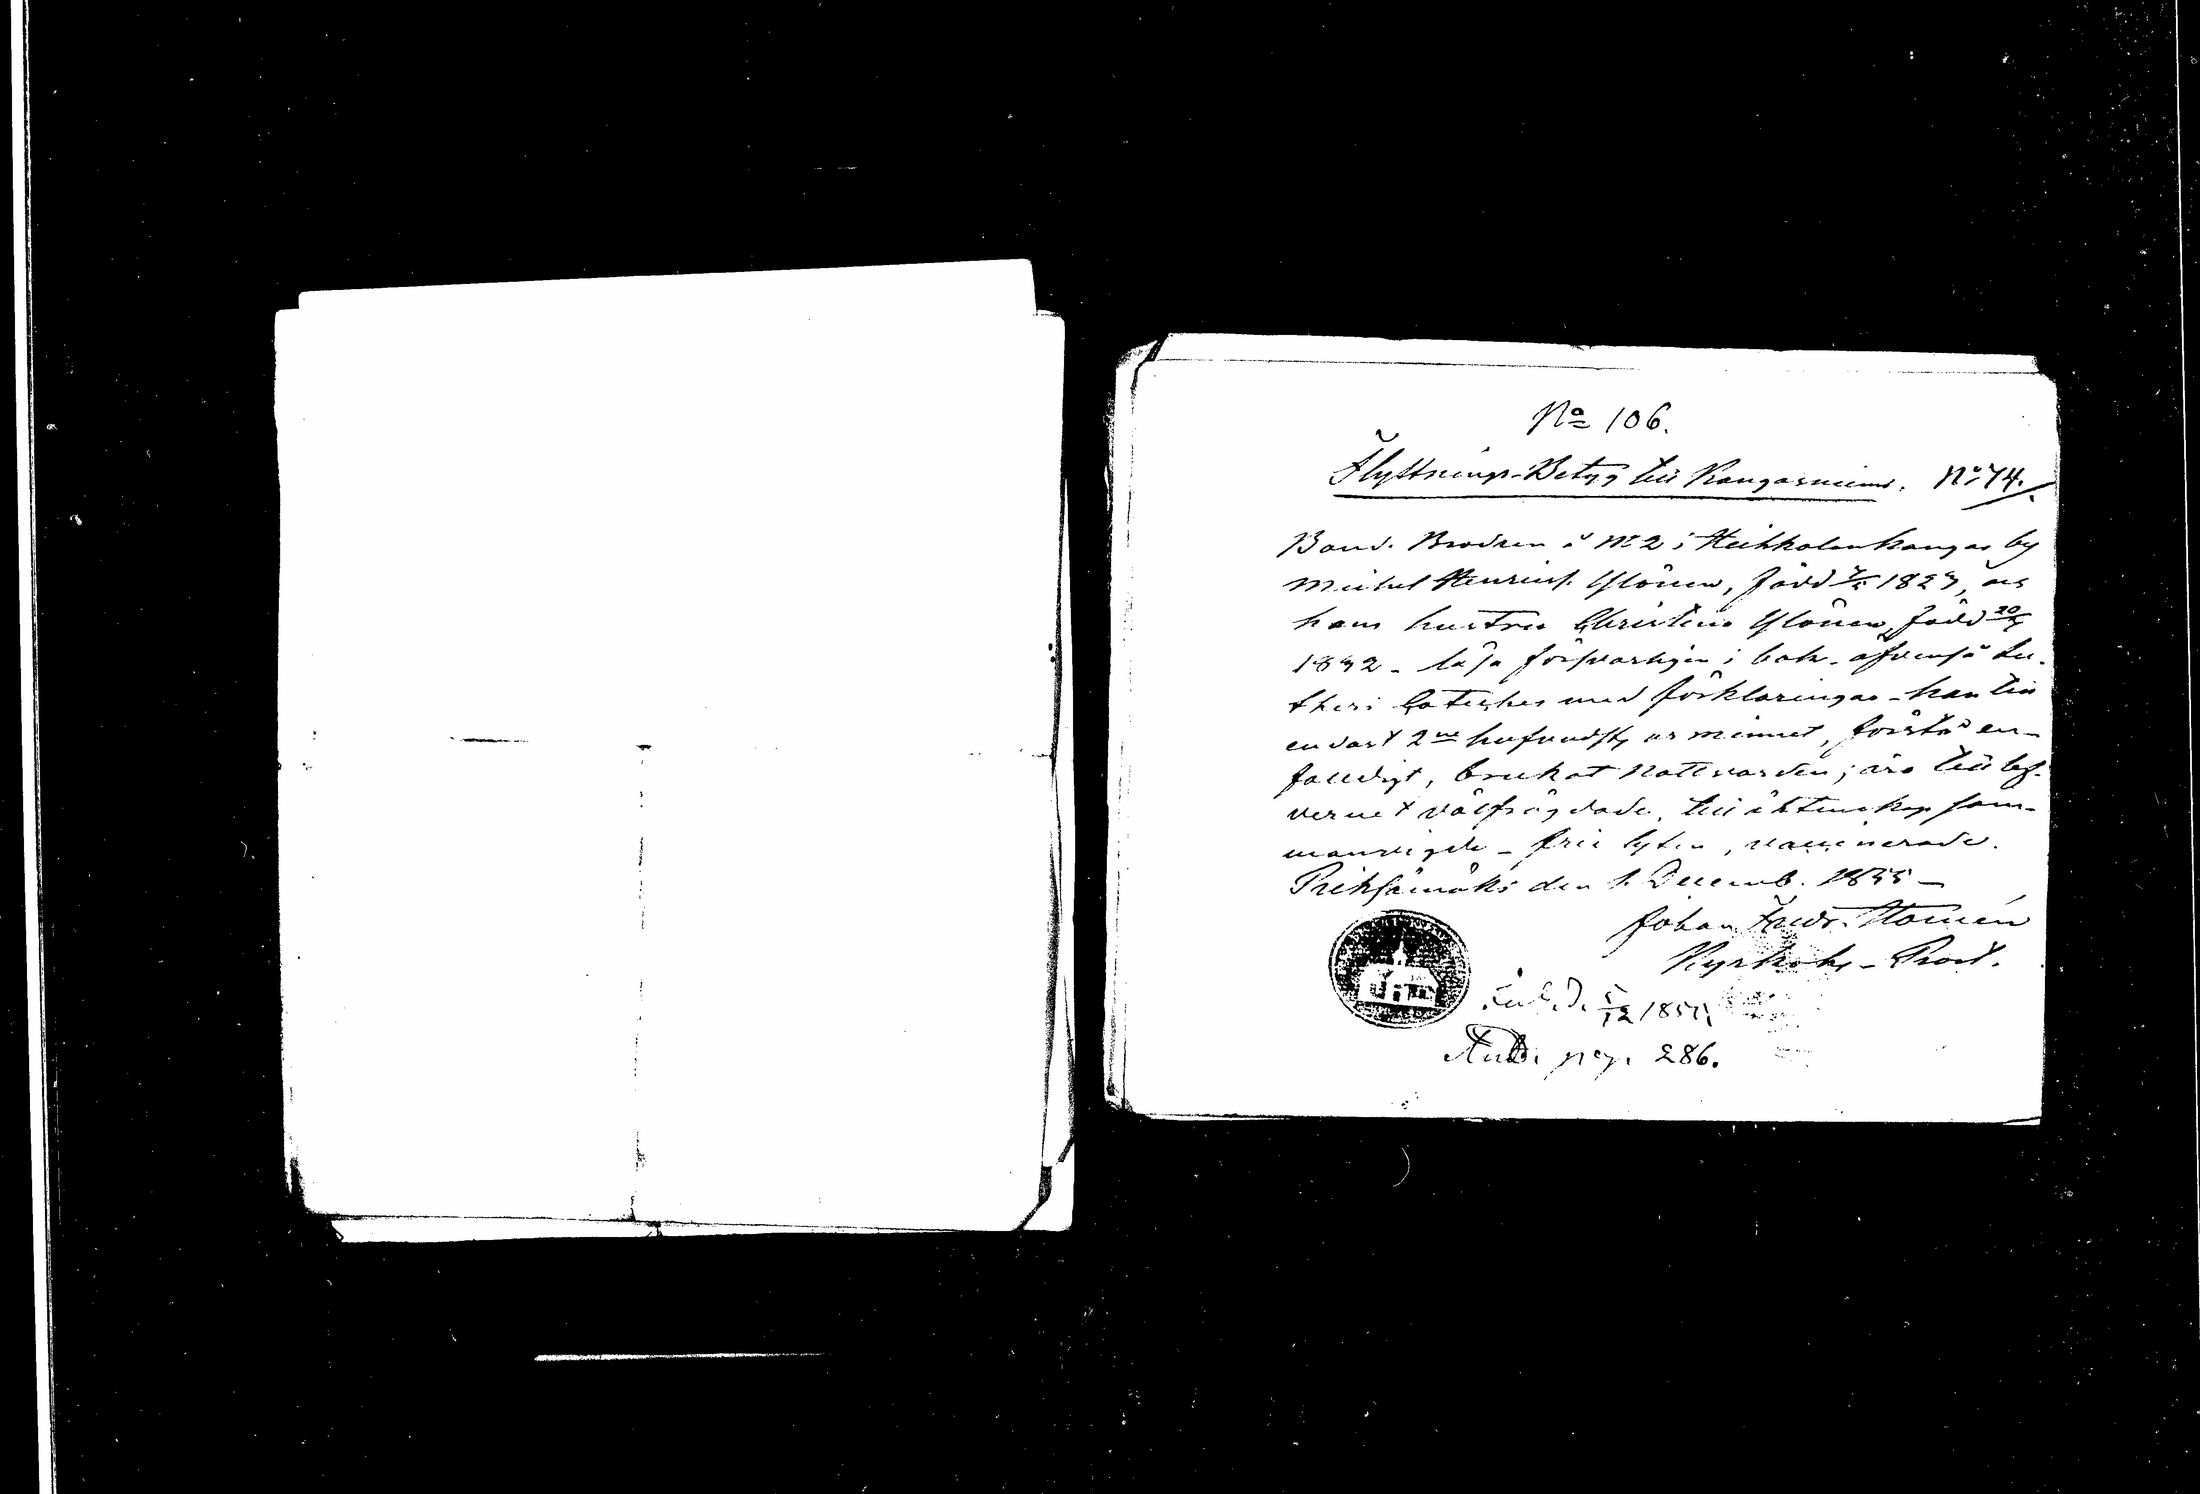 No 106.
Flyttnings-Betyg till Kangasniemi. No 74.
Bond. Brodren å No 2 i Heikkolankangas by
Michel Henrics. Ylönen, född 1827, och
hans hustru Christina Ylönen, född 20/
1832 - läsa försvarligen i bok. äfvenså Lu-
theri Cateches med förklaringar - han till
endast 2ne hufvudst, ur minnet, förstå en-
faldigt, brukat nattvarden; äro till lef-
vernet välfrägdade, till äktenskap sam-
manvigde - frie lyten, vaccinerade.
Pieksämäki den 1. Decemb. 1855 -
Johan Fredr.
Kyrkoh. - Prost.
Inl. d. 5/12 1855
Antt. pag. 286.